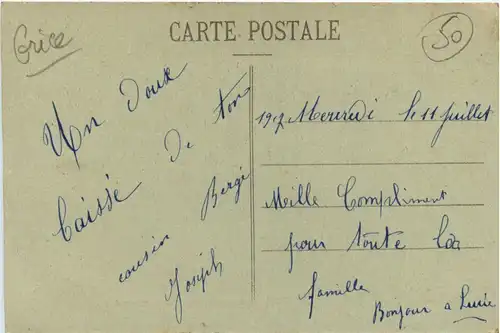 Grice
CARTE POSTALE
50
Un doux
baissé de ton
cousin Bergé
Joseph
Mercredi le 11 juillet
Meille Compliment
pour toute la
famille
Bonjour a Lucie